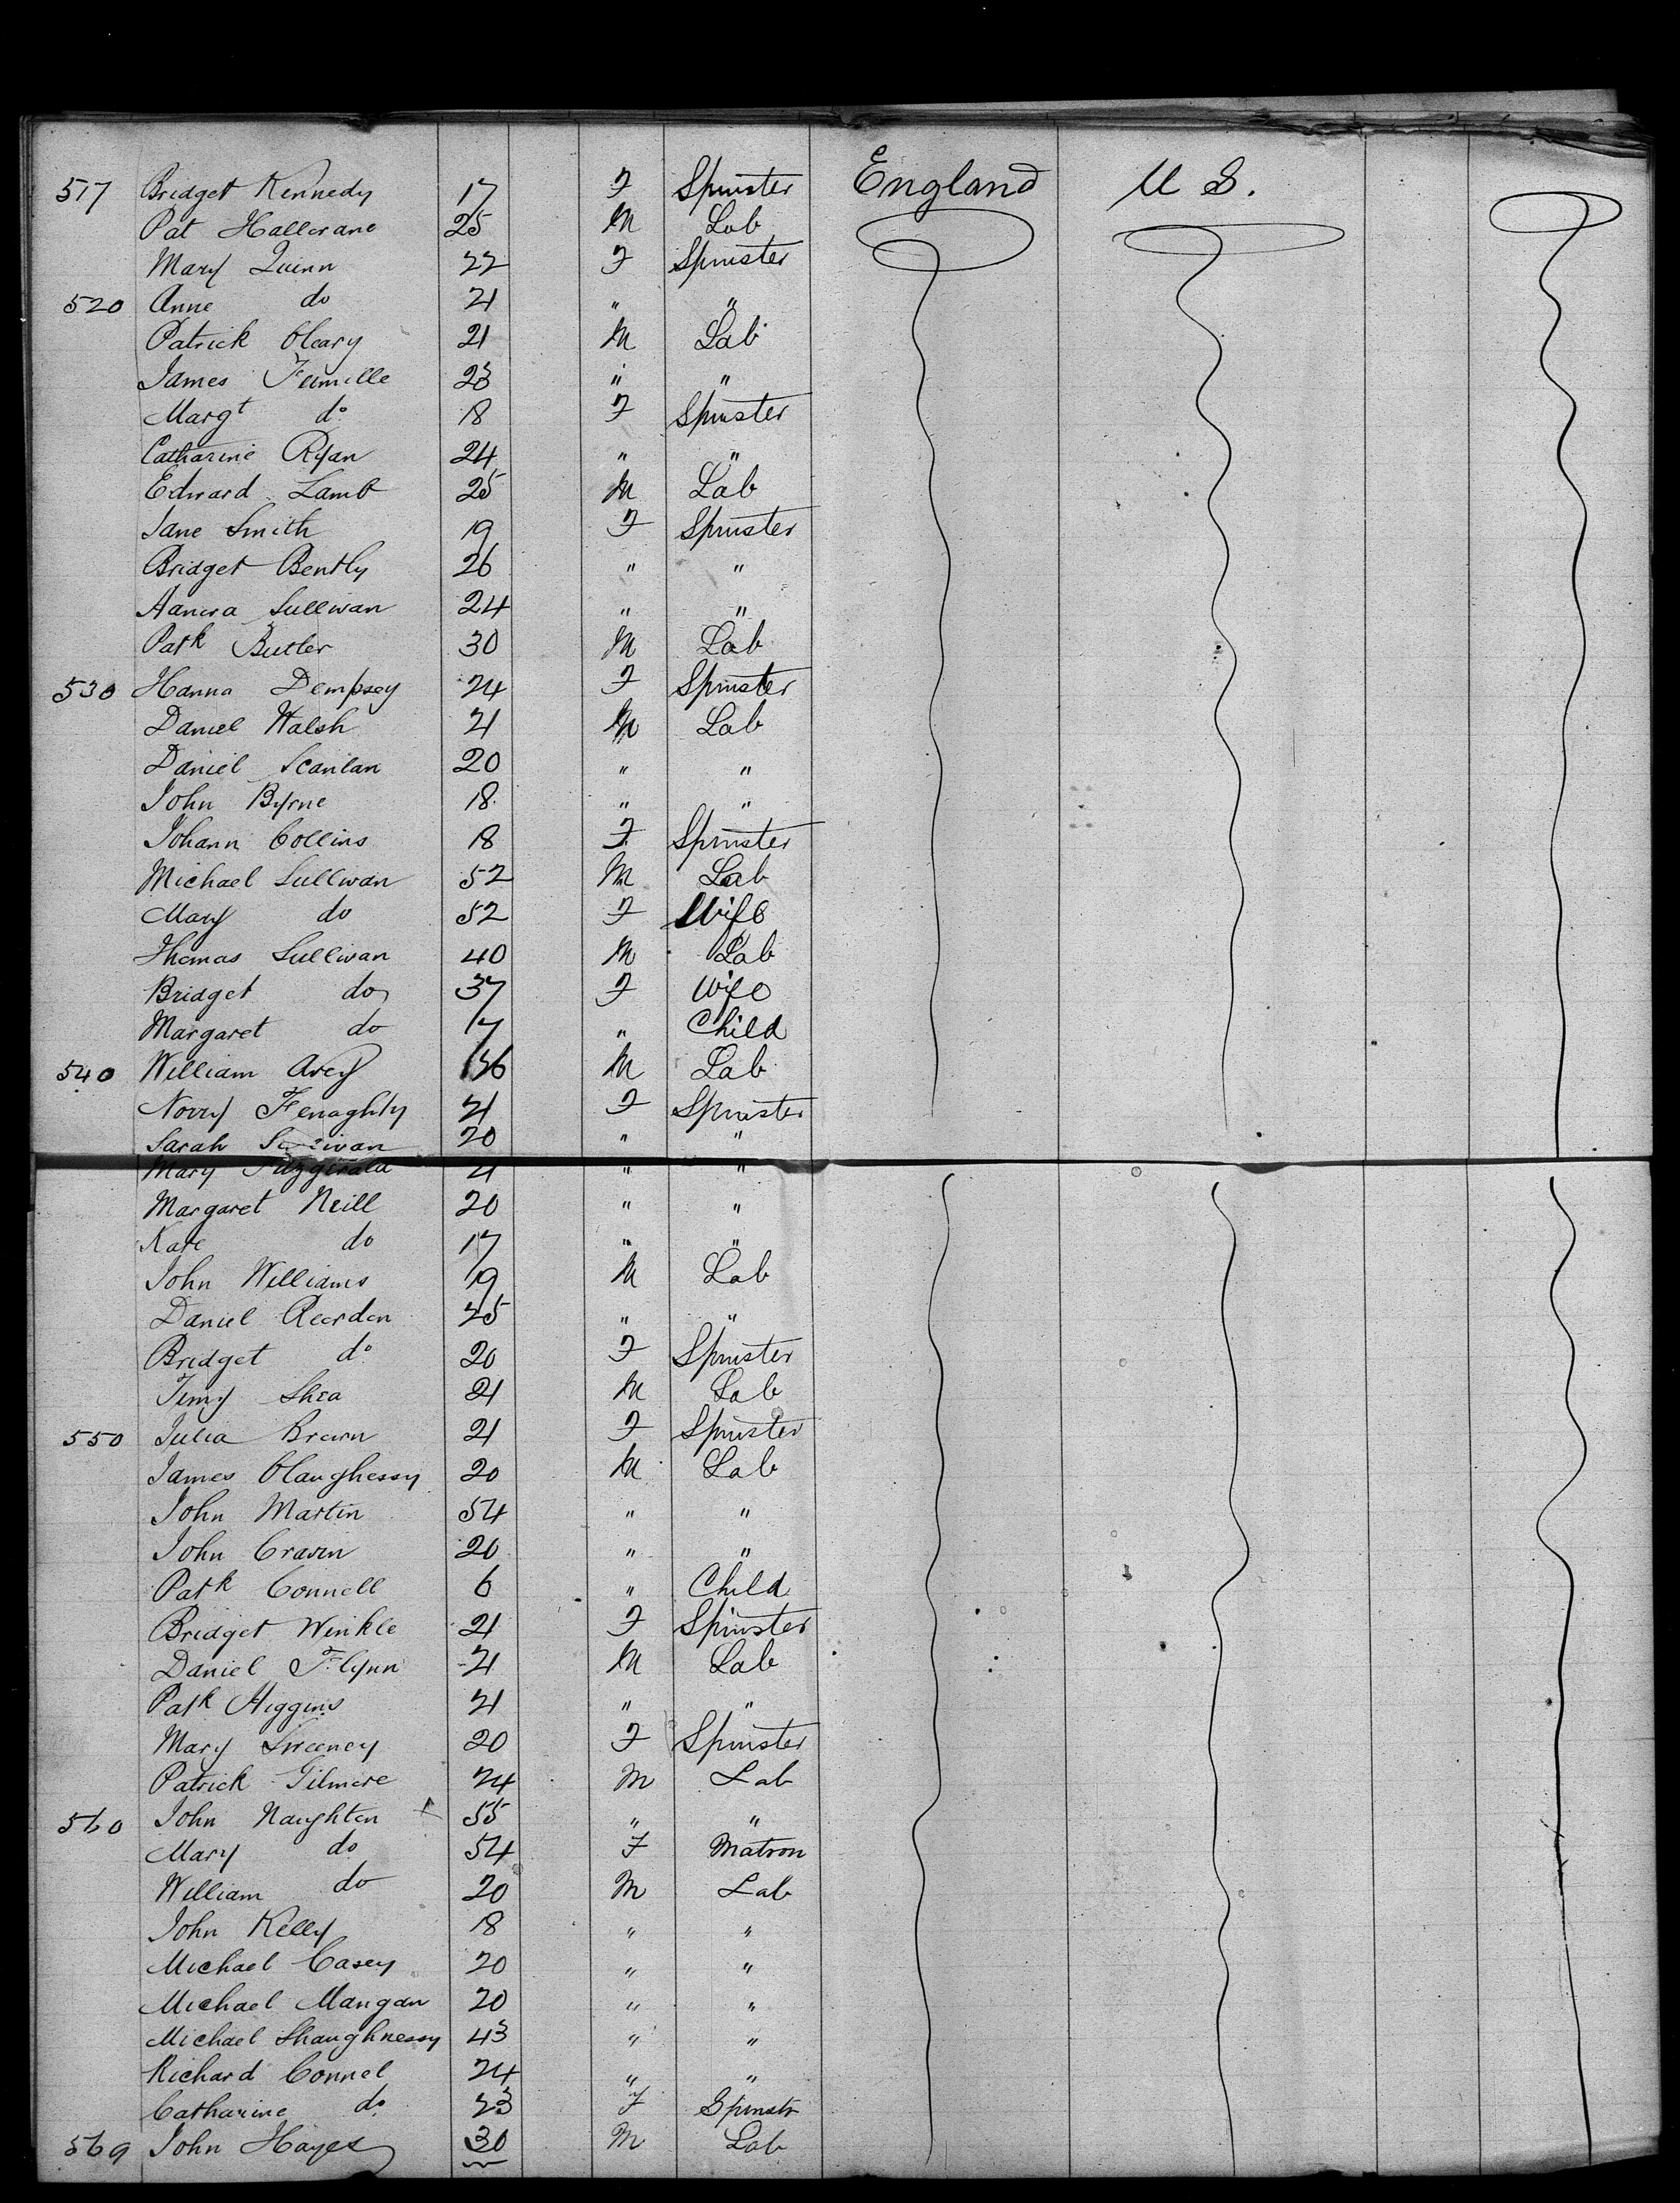 517 Bridget Kennedy 17 F Spinster England U S.
Pat Hallorane 25 M Lab
Mary Quinn 22 F Spinster
520 Anne do 21 " "
Patrick Oleary 21 M Lab
James 23 " "
Margt do 18 F Spinster
Catharine Ryan 24 " "
Edward Lamb 25 M Lab
Jane Smith 19 F Spinster
Bridget Bently 26 " "
Hanora Sullivan 24 " "
Patk Butler 30 M Lab
530 Hanna Dempsey 24 F Spinster
Daniel Walsh 21 M Lab
Daniel Scanlan 20 " "
John Byrne 18 " "
Johann Collins 18 F Spinster
Michael Sullivan 52 M Lab
Mary do 52 F Wife
Thomas Sullivan 40 M Lab
Bridget do 37 F Wife
Margaret do 17 " Child
540 William M Lab
Norry Fenaghty 21 F Spinster
Sarah Sullivan 20 " "
Mary Fitzgerald 21 " "
Margaret Neill 20 " "
Kate do 17 " "
John Williams 19 M Lab
Daniel Reardon 25 " "
Bridget do 20 F Spinster
Shea 21 M Lab
550 Julia Brown 21 F Spinster
James Olaughessy 20 M Lab
John Martin 54 " "
John Craven 20 " "
Patk Connell 6 " Child
Bridget Winkle 21 F Spinster
Daniel Flynn 21 M Lab
Patk Higgins 21 " "
Mary Sweeney 20 F Spinster
Patrick Gilmore 24 M Lab
560 John Naughton x 55 " "
Mary do 54 F Matron
William do 20 M Lab
John Kelly 18 " "
Michael Casey 20 " "
Michael Mangan 20 " "
Michael Shaughnessy 43 " "
Richard Connel 24 " "
Catharine do 23 F Spinstr
569 John Hayes 30 M Lab